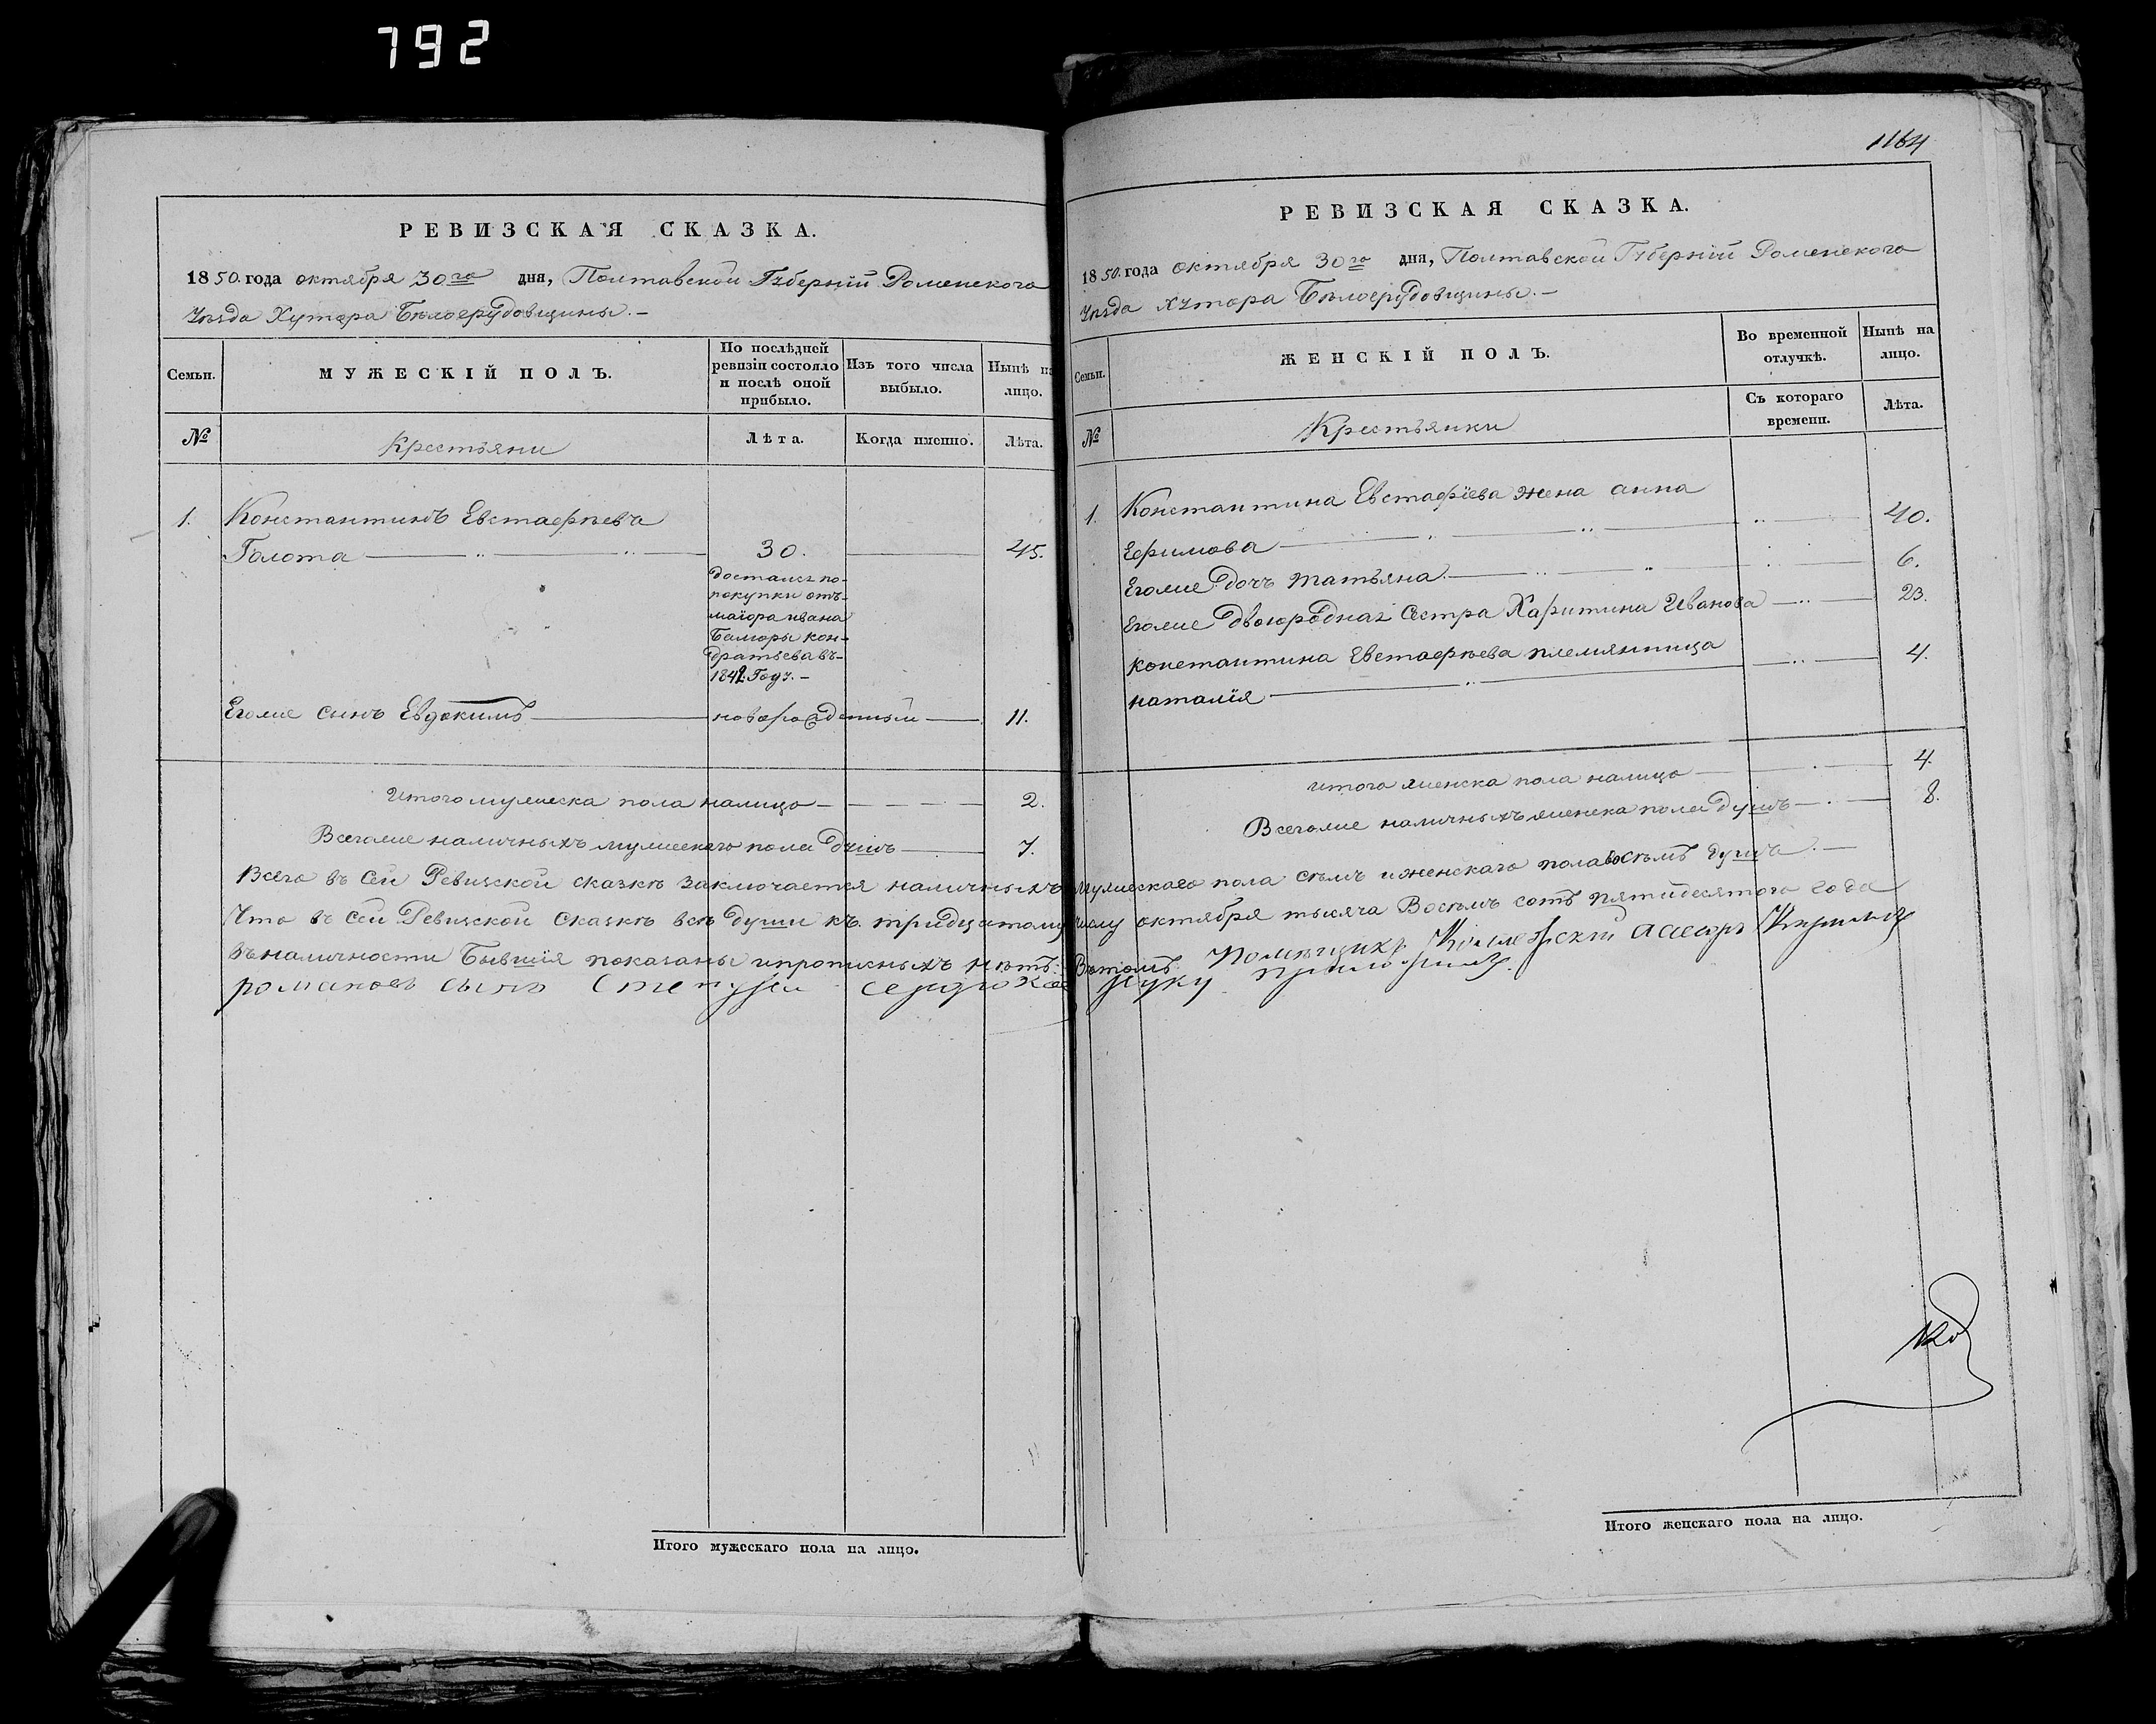 792
РЕВИЗСКАЯ СКАЗКА.
1850. года октября 30го дня, Полтавской Губерніи Роменского
Уезда Хутора Белогрудовщины.—
Семьи. МУЖЕСКІЙ ПОЛЪ. По послѣдней ревизіи состояло и послѣ оной прибыло. Изъ того числа выбыло. Нынѣ на лицо.
№ Крестьяни Лѣта. Когда именно. Лѣта.
1. Константинъ Евстафѣевъ
Голота 30. 45.
досталсь по-
покупки отъ-
маіора ивана
кон-
дратьева въ-
184 Году.—
Егоже сынъ Евдокимъ новорожденный 11.
Итого мужеска пола налицо 2.
Всегоже наличныхъ мужескаго пола душъ 7.
1164
РЕВИЗСКАЯ СКАЗКА.
1850. года октября 30го дня, Полтавской Губерніи Роменского
Уезда Хутора Белогрудовщины.—
Семьи. ЖЕНСКІЙ ПОЛЪ. Во временной отлучкѣ. Нынѣ на лицо.
№ Крестьянки Съ котораго времени. Лѣта.
1. Константина Евстафіева жена анна
Ефимова 40.
Егоже дочъ татьяна 6.
Егоже двоюродная Сестра Харитина Иванова 23.
константина Евстафѣева племянница
наталія 4.
итого женска пола налицо 4.
Всегоже наличныхъ женска пола душъ 8.
Всего въ Сей Ревизской сказкѣ заключается наличныхъ мужескаго пола семъ и женскаго пола восѣмъ душъ.—
Что въ сей Ревизской Сказкѣ всѣ души къ тридцатому числу октября тысяча Восѣмъ сотъ пятидесятого года
въ наличности Бывшія показаны ипрописныхъ нѣтъ. Въ томъ Помещикъ Ассесоръ
романовъ сынъ руку
Итого мужескаго пола на лицо.
Итого женскаго пола на лицо.